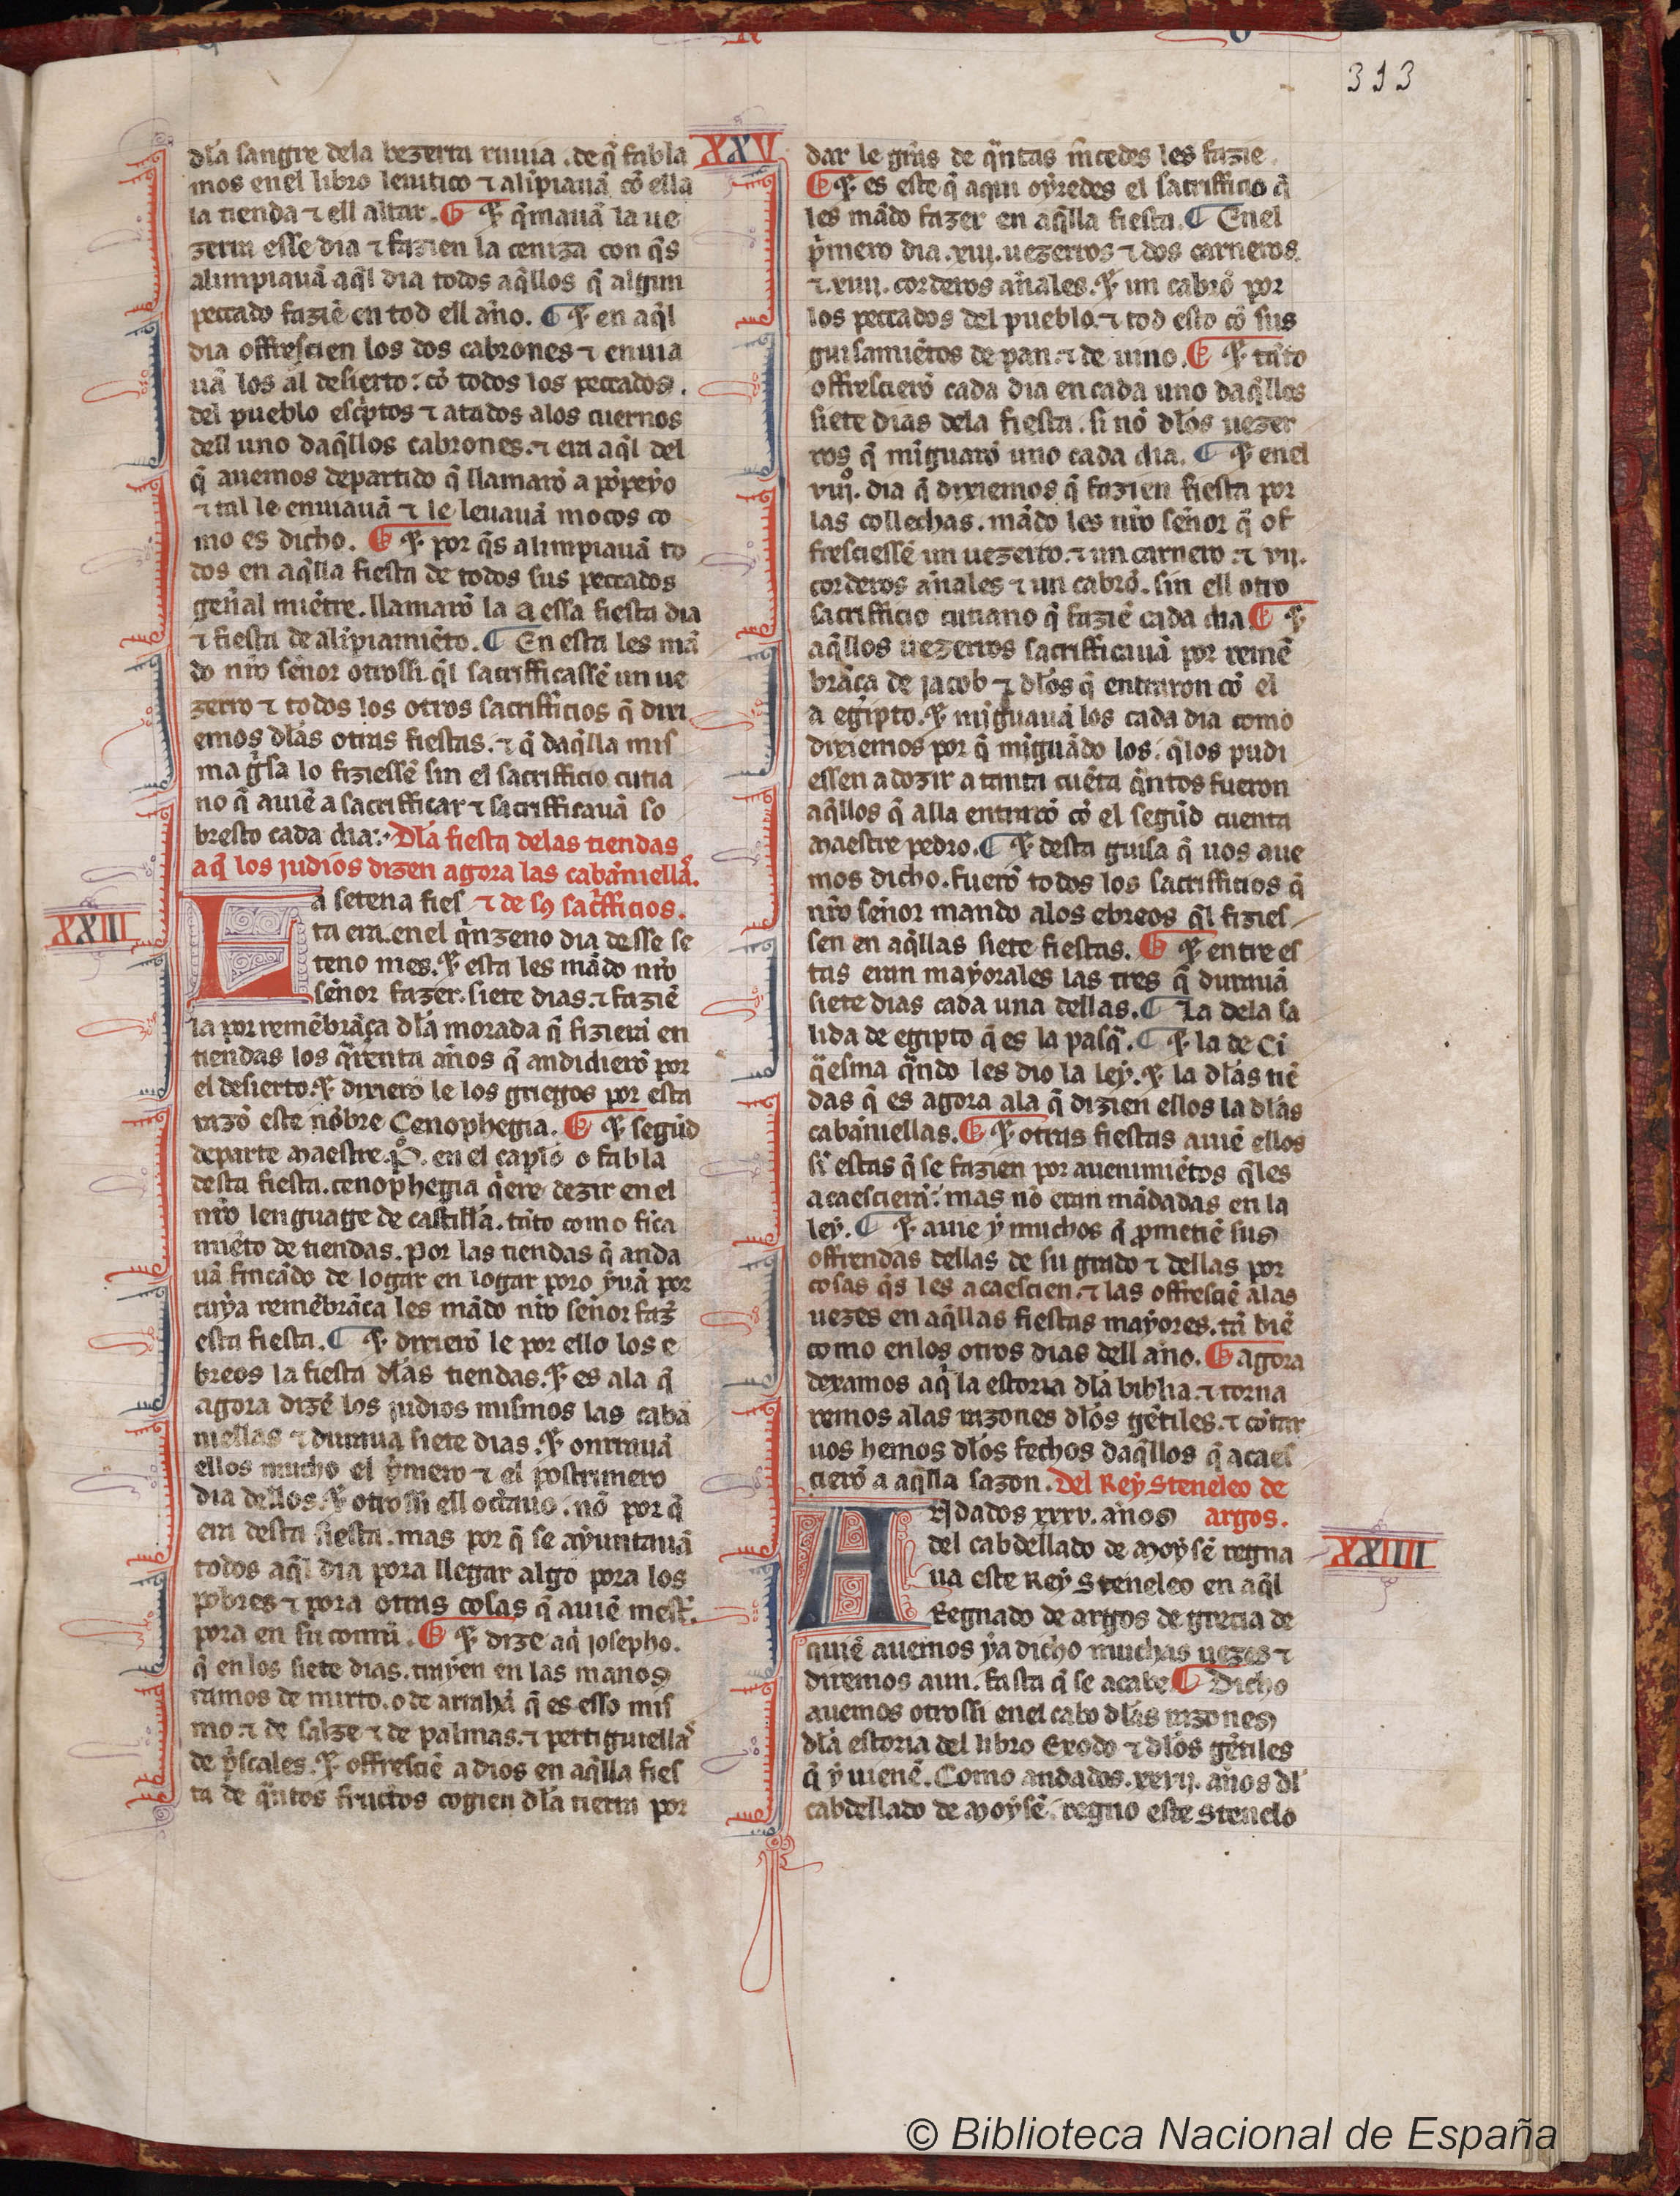 313
dl̃a sangre dela bezerra ruuia . de q̃ fabla
mos en el libro leuitico ⁊ alĩpiauã cõ ella
la tienda ⁊ ell altar. ¶ ⁊ q̃mauã la ue
zerra esse dia ⁊ fazien la ceniza con q̃s
alimpiauã aq̃l dia todos aq̃llos q̃ algun
peccado faziẽ en tod ell año. ¶ ⁊ en aq̃l
dia offrescien los dos cabrones ⁊ enuia
uã los al desierto: cõ todos los peccados.
del pueblo escͥptos ⁊ atados alos cuernos
dell uno daq̃llos cabrones. ⁊ era aq̃l del
q̃ auemos departido q̃ llamarõ apopeyo
⁊ tal le enuiauã ⁊ le leuauã moços co
mo es dicho. ¶ ⁊ por q̃s alimpiauã to
dos en aq̃lla fiesta de todos sus peccados
geñal miẽtre. llamarõ la a essa fiesta dia
⁊ fiesta de alĩpiamiẽto. ¶ En esta les mã
do nr̃o señor otrossi. q̃l sacrifficassẽ un ue
zerro ⁊ todos los otros sacrifficios q̃ dixi
emos dl̃as otras fiestas. ⁊ q̃ daq̃lla mis
ma gͥsa lo fiziessẽ sin el sacrifficio cutia
no q̃ auiẽ a sacrifficar ⁊ sacrifficauã so
bresto cada dia:· Dl̃a fiesta delas tiendas
a q̃ los judios dizen agora las cabãniellas.
La setena fies ⁊ de sꝯ sacͥfficios.
ta era. en el q̃nzeno dia desse se
teno mes. ⁊ esta les mãdo nr̃o
señor fazer. siete dias. ⁊ faziẽ
XXIII
la por remẽbrãça dl̃a morada q̃ fizierã en
tiendas los q̃renta años q̃ andidierõ por
el desierto. ⁊ dixierõ le los griegos por esta
razõ este nõbre Cenophegia. ¶ ⁊ segũd
departe maestre .P̊. en el capͥlo o fabla
desta fiesta. cenophegia q̃ere dezir en el
nr̃o lenguage de castiella. tãto como finca
miẽto de tiendas. Por las tiendas q̃ anda
uã fincãdo de logar en logar poro yuã por
cuya remẽbrãça les mãdo nr̃o señor faz̃
esta fiesta. ¶ ⁊ dixierõ le por ello los e
breos la fiesta dl̃as tiendas. ⁊ es ala q̃
agora dizẽ los judios mismos las cabã
niellas ⁊ duraua siete dias. ⁊ onrrauã
ellos mucho el pͥmero ⁊ el postrimero
dia dellos. ⁊ otrossi ell octauo. nõ por q̃
era desta fiesta. mas por q̃ se ayuntauã
todos aq̃l dia pora llegar algo pora los
pobres ⁊ pora otras cosas q̃ auiẽ mest̃.
pora en su comũ. ¶ ⁊ dize aq̃ josepho.
q̃ en los siete dias. trayen en las manos
ramos de mirto. o de arrahã q̃ es esso mis
mo. ⁊ de salze ⁊ de palmas. ⁊ pertiguiellas
de pͥscales. ⁊ offresciẽ a dios en aq̃lla fies
ta de q̃ntos fructos cogien dl̃a tierra por
XXV
dar le grãs de q̃ntas m̃cedes les fazie.
¶ ⁊ es este q̃ aqui oyredes el sacrifficio q̃
les mãdo fazer en aq̃lla fiesta. ¶ En el
pͥmero dia .xiij. uezerros ⁊ dos carneros.
⁊ .xiiij. corderos añales. ⁊ un cabrõ por
los peccados del pueblo. ⁊ tod esto cõ sus
guisamiẽtos de pan. ⁊ de uino. ¶ ⁊ tãto
offrescierõ cada dia en cada uno daq̃llos
siete dias dela fiesta. si nõ dl̃os uezer
ros q̃ mĩguarõ uno cada dia. ¶ ⁊ en el
viijº. dia q̃ dixiemos q̃ fazien fiesta por
las collechas. mãdo les nr̃o señor q̃ of
fresciessẽ un uezerro. ⁊ un carnero. ⁊ vij.
corderos añales ⁊ un cabrõ. sin ell otro
sacrifficio cutiano q̃ faziẽ cada dia ¶ ⁊
aq̃llos uezerros sacrifficauã por remẽ
brãça de jacob ⁊ dl̃os q̃ entraron cõ el
a egipto. ⁊ mĩguauã los cada dia como
dixiemos por q̃ mĩguãdo los. q̃los pudi
essen adozir a tanta cuẽta q̃ntos fueron
aq̃llos q̃ alla entrarõ cõ el segũd cuenta
maestre pedro. ¶ ⁊ desta guisa q̃ uos aue
mos dicho. fuerõ todos los sacrifficios q̃
nr̃o señor mando alos ebreos q̃l fizies
sen en aq̃llas siete fiestas. ¶ ⁊ entre es
tas eran mayorales las tres q̃ durauã
siete dias cada una dellas. ¶ La dela sa
lida de egipto q̃ es la pasq̃. ¶ ⁊ la de Ci
q̃esma q̃ndo les dio la ley. ⁊ la dl̃as tiẽ
das q̃ es agora ala q̃ dizien ellos la dl̃as
cabãniellas. ¶ ⁊ otras fiestas auiẽ ellos
sĩ estas q̃ se fazien por auenimiẽtos q̃les
acaescierã: mas nõ eran mãdadas en la
ley. ¶ ⁊ auie y muchos q̃ ꝓmetiẽ sus
offrendas dellas de su grado ⁊ dellas por
cosas q̃s les acaescien. ⁊ las offresciẽ alas
uezes en aq̃llas fiestas mayores. tã biẽ
como en los otros dias dell año. ¶ agora
dexamos aq̃ la estoria dl̃a biblia. ⁊ torna
remos alas razones dl̃os gẽtiles. ⁊ cõtar
uos hemos dl̃os fechos daq̃llos q̃ acaes
cierõ a aq̃lla sazon. Del Rey Steneleo de
Andados xxxv. años argos.
del cabdellado de moysẽ regna
XXIIII
ua este Rey Steneleo en aq̃l
Regnado de argos de grecia de
quiẽ auemos ya dicho muchas uezes ⁊
diremos aun. fasta q̃ se acabe ¶ Dicho
auemos otrossi en el cabo dl̃as razones
dl̃a estoria del libro Exodo ⁊ dl̃os gẽtiles
q̃ y uienẽ. Como andados .xxvij. años dl̃
cabdellado de moysẽ. regno este Stenelo
© Biblioteca Nacional de España